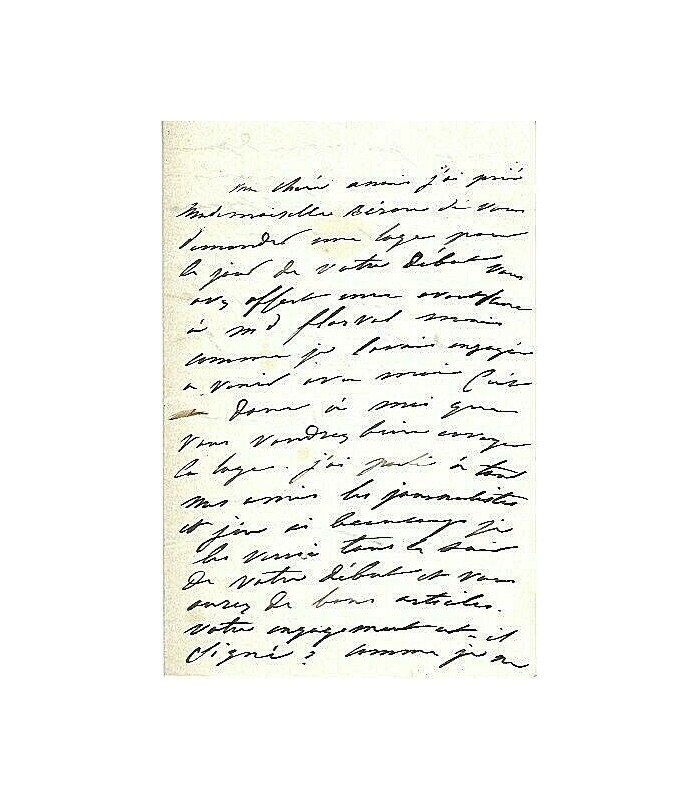 ma chère amie j'ai prié
Mademoiselle Béron de vous
demander une loge pour
le jour de votre début vous
avez offert une avant scène
à md florval mais
comme je l'avais engagée
a venir avec moi C'est
donc à moi que
vous voudrez bien envoyer
la loge. j'ai parlé à tous
mes amis les journalistes
et j'en ai beaucoup je
les verrai tous le soir
de votre début et vous
aurez de bons articles.
votre engagement est-il
signé ? comme je ne